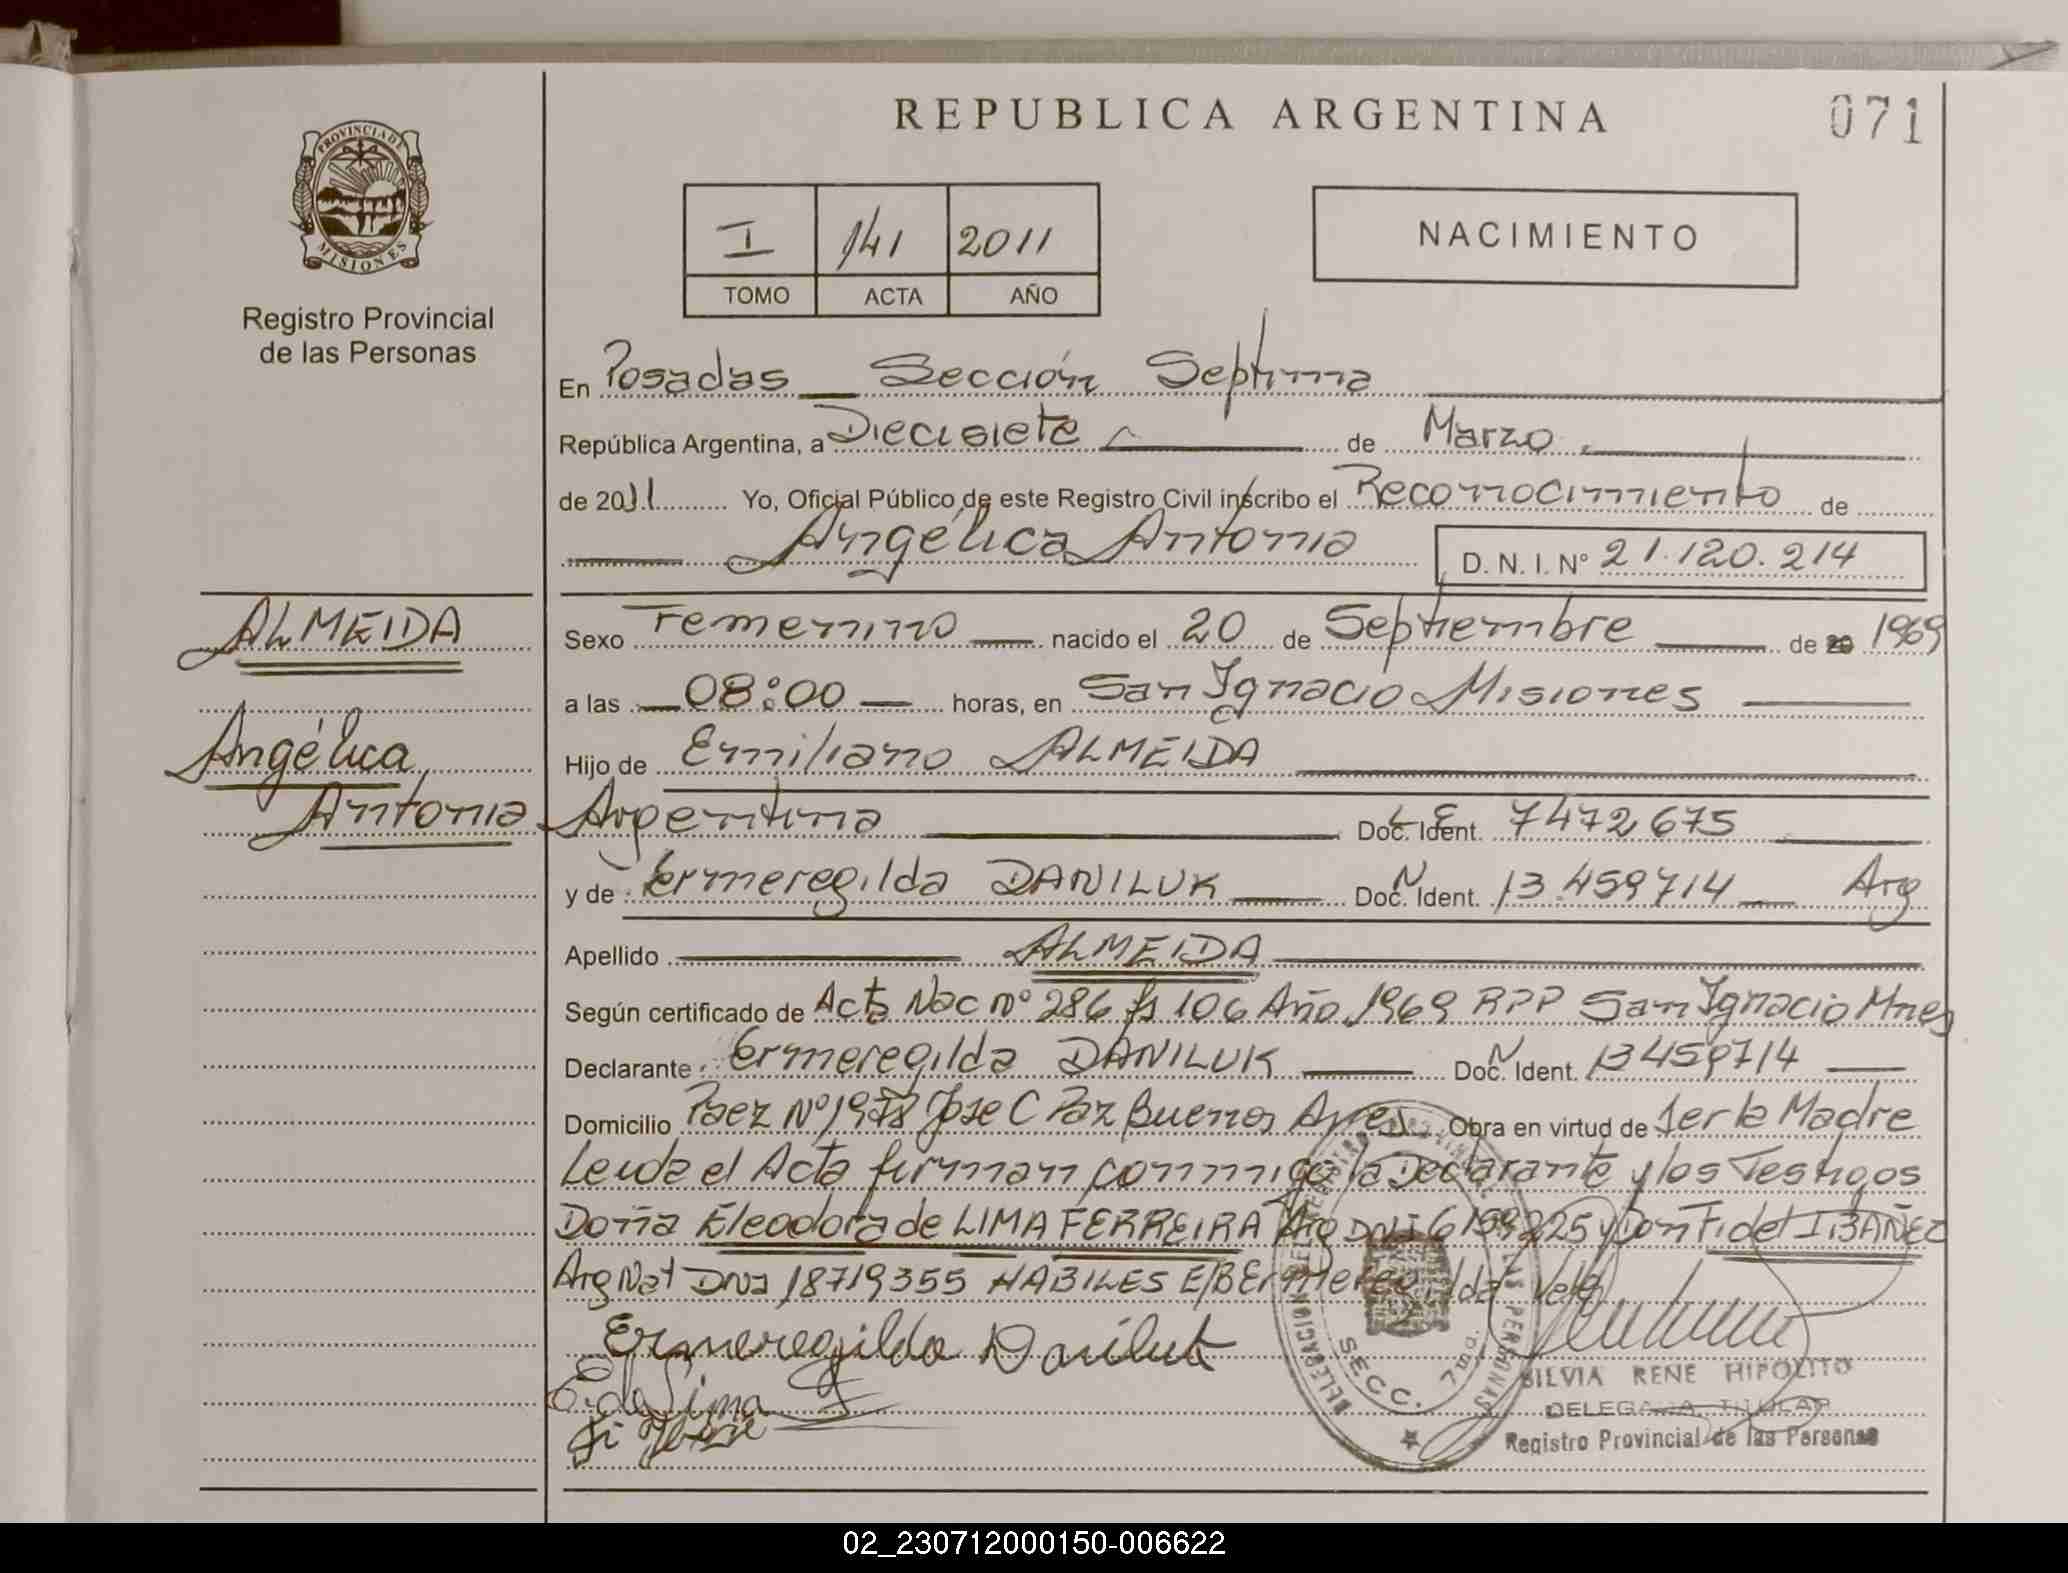 REPUBLICA ARGENTINA
071
PROVINCIA DE MISIONES
Registro Provincial
de las Personas
I 141 2011
TOMO ACTA AÑO
NACIMIENTO
En Posadas Sección Septima
República Argentina, a Diecisiete de Marzo
de 2011 Yo, Oficial Público de este Registro Civil inscribo el Reconocimiento de
Angélica Antonia D. N. I. Nº 21.120.214
ALMEIDA
Angélica
Antonia
Sexo Femenino nacido el 20 de Septiembre de 20 1969
a las 08:00 horas, en San Ignacio Misiones
Hijo de Emiliano ALMEIDA
Argentina Doc. Ident. L E 7472675
y de Ermeregilda DANILUK Doc. Ident. N 13.459714 Arg
Apellido ALMEIDA
Según certificado de Acta Nac nº 286 fs 106 Año 1969 RPP San Ignacio Mnes
Declarante Ermeregilda DANILUK Doc. Ident. N 13459714
Domicilio Paez Nº 1978 Jose C Paz Buenos Ayres Obra en virtud de Ser la Madre
Leida el Acta firman conmigo la Declarante y los Testigos
Doña Eleodora de LIMA FERREIRA Arg DNI 6159225 y Don Fidel IBAÑEZ
Arg Nat DNI 18719355 HABILES E/B Ermeregilda Vale
Ermeregilda Daniluk
E. de Lima F
SECC. 7ma.
SILVIA RENE HIPOLITO
DELEGADA TITULAR
Registro Provincial de las Personas
02_230712000150-006622